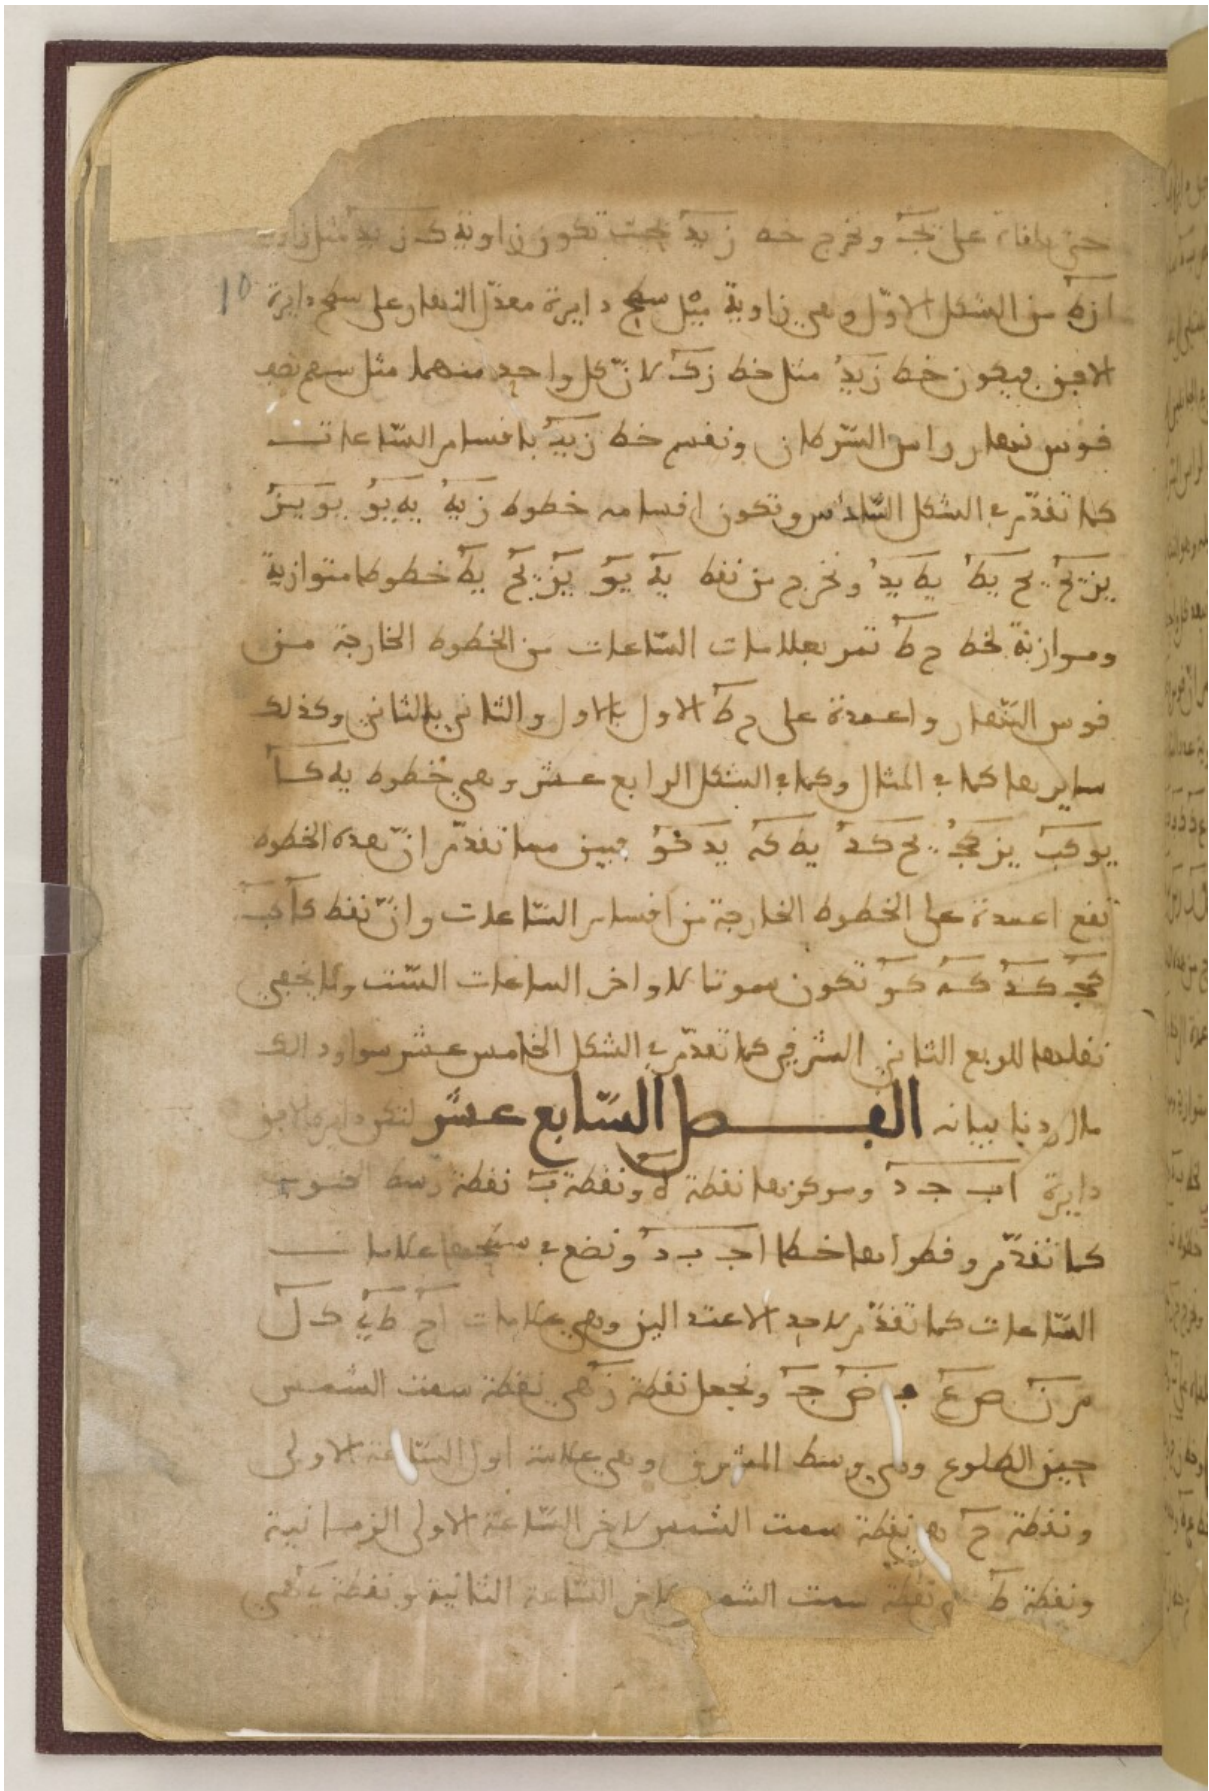 حتى يلقاه على يج ونخرج خط زيد بحيث تكون زاوية ك زيد مثل زاوية
10
ازط من الشكل الاول وهي زاوية ميل سطح دايرة معدل النهار على سطح دايرة
الافق فيكون خط زيد مثل خط زك لان كل واحد منهما مثل سهم نصف
قوس نهار راس السرطان ونقسم خط زيد باقسام الساعات
كما تقدم في الشكل السادس وتكون اقسامه خطوط زيه يه يو يو يز
يز يح يح يط يط يد ونخرج من نقط يه يو يز يح يط خطوطا متوازية
وموازية لخط ح ط تمر بعلامات الساعات من الخطوط الخارجة من
قوس النهار واعمدة على ح ط الاول بالاول والثاني بالثاني وكذلك
سايرها كما في المثال وكما في الشكل الرابع عشر وهي خطوط يه كا
يو كب يز كج يح كد يط كه يد كو فبين مما تقدم ان هذه الخطوط
تقع اعمدة على الخطوط الخارجة من اقسام الساعات وان نقط كا كب
كج كد كه كو تكون سموتا لاواخر الساعات الست ولا يخفى
نقلها للربع الثاني الشرقي كما تقدم في الشكل الخامس عشر سوا وذلك
ما اردنا بيانه الفصل السابع عشر لتكن دايرة الافق
دايرة اب جد ومركزها نقطة ه ونقطة ب نقطة وسط الجنوب
كما تقدم وقطراها خطا اج ب د ونضع في سطحها علامات
الساعات كما تقدم لاحد الاعتدالين وهي علامات اح ط ي ك ل
م ن ص ع ف ض ج ونجعل نقطة ز هي نقطة سمت الشمس
حين الطلوع وهي وسط المشرق وهي علامة اول الساعة الاولى
ونقطة ح هي نقطة سمت الشمس لاخر الساعة الاولى الزمانية
ونقطة ط نقطة سمت الشمس لاخر الساعة الثانية ونقطة ي هي